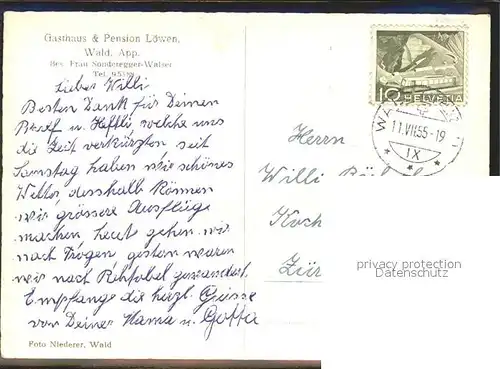 Gasthaus & Pension Löwen,
Wald, App.
Bes. Frau Sonderegger-Walser
Lieber Willi
Besten Dank für Deinen
Brief u. Heftli, welche uns
die Zeit verkürzten seit
Samstag haben wir schönes
Wetter, desshalb können
wir grössere Ausflüge
machen, heut gehen wir
nach Trogen, gestern waren
wir nach Rehtobel gewandert.
Empfange die herzl. Grüsse
von Deiner Mama u. Gotte
Foto Niederer, Wald
10 HELVETIA
WA
11.VII.55-19
IX
Herrn
Willi
Koch
Zür
privacy protection
Datenschutz